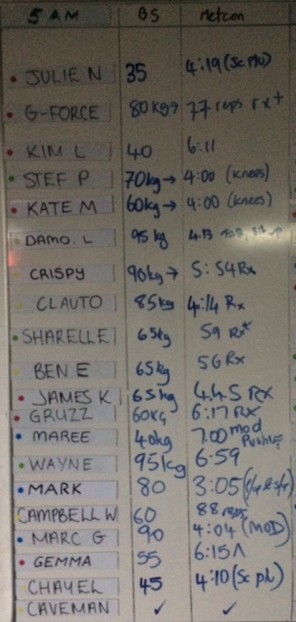 5 AM BS Metcon
JULIE N 35 4:19 (Sc PU)
G-FORCE 80kg→ 77 reps rx+
KIM L 40 6:11
STEF P 70kg→ 4:00 (knees)
KATE M 60kg→ 4:00 (knees)
DAMO. L 95 kg 4:13
CRISPY 90kg→ 5:54 Rx
CLAUTO 85kg 4:14 Rx
SHARELLE 65kg 59 Rx
BEN E 65kg 56 Rx
JAMES K 65kg 4.45 rx
GRUZZ 60KG 6:17 RX
MAREE 40kg 7.00 mod Pushups
WAYNE 95kg 6:59
MARK 80 3:05
CAMPBELL W 60 88 reps
MARC G 90 4:04 (MOD)
GEMMA 55 6:15
CHAYEL 45 4:10 (Sc pu)
CAVEMAN ✓ ✓